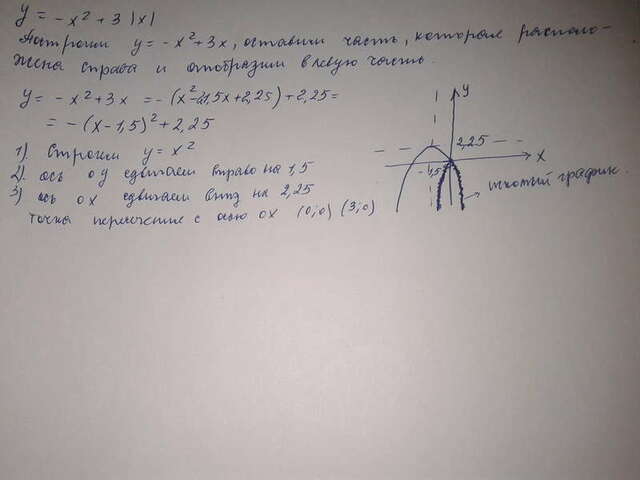 y = - x² + 3 |x|
Построим y = - x² + 3x, оставим часть, которая располо-
жена справа и отобразим в левую часть.
y = - x² + 3x = - (x² - 2·1,5x + 2,25) + 2,25 =
= - (x - 1,5)² + 2,25
1). Строим y = x²
2). ось oy сдвигаем вправо на 1,5
3) ось ox сдвигаем вниз на 2,25
точки пересечение с осью ox (0;0) (3;0)
y
2,25
x
-1,5
искомый график.